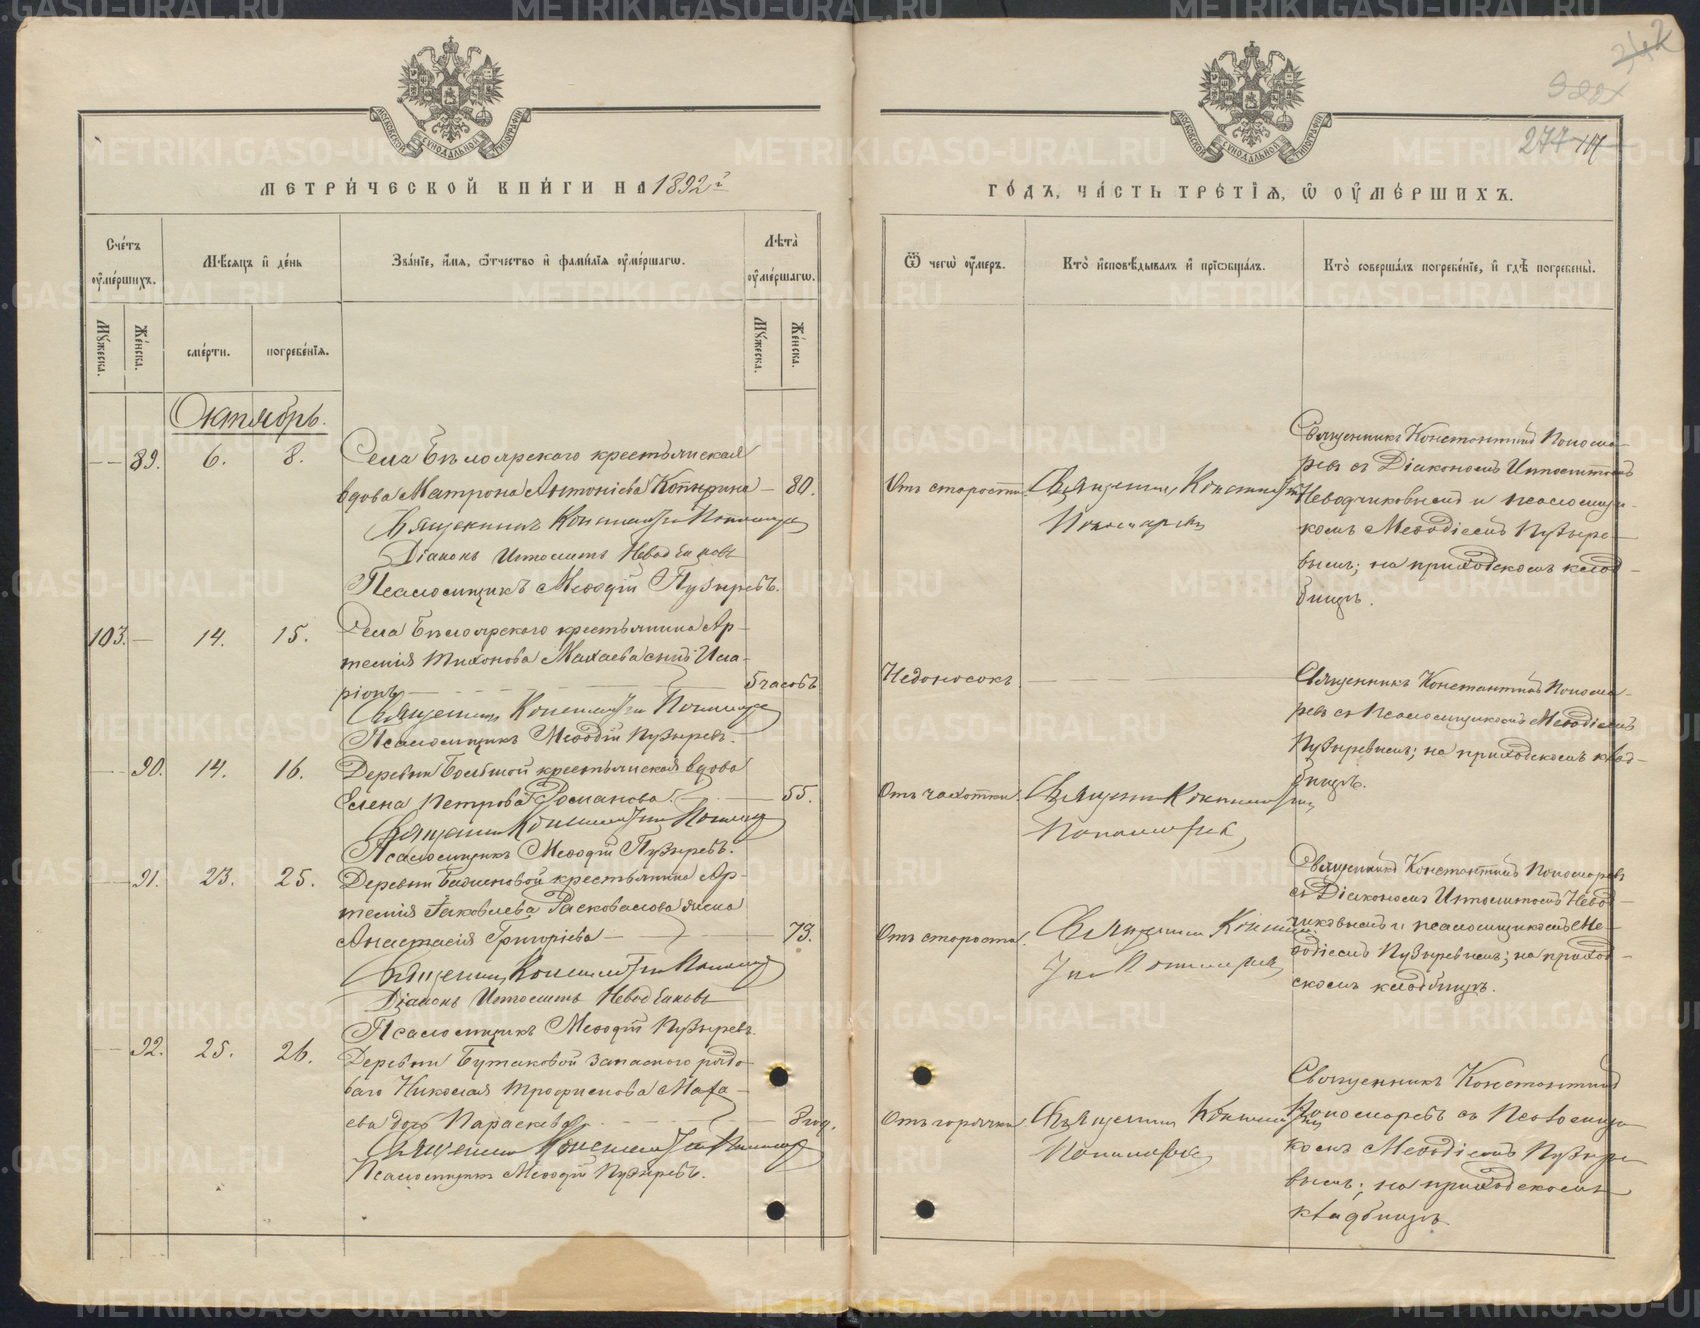 МЕТРИ́ЧЕСКОЙ КНИ́ГИ НА 1892й
Сче́тъ оу҆ме́ршихъ.
Мꙋ́жеска.
Же́нска.
Мѣ́сѧцъ и҆ де́нь
сме́рти.
погребе́нїѧ.
Зва́нїе, и҆́мѧ, ѻ҆́тчество и҆ фами́лїѧ оу҆ме́ршагѡ.
Лѣ́та оу҆ме́ршагѡ.
Мꙋ́жеска.
Же́нска.
Октябрь.
89. 6. 8. Села Бѣлоярскаго крестьянская
вдова Матрона Антонiева Копырина — 80.
Священникъ Константинъ Пономаревъ
Дiаконъ Ипполитъ Неводчиковъ
Псаломщикъ Меѳодiй Пузыревъ.
103. — 14. 15. Села Бѣлоярскаго крестьянина Ар-
темiя Тихонова Махаева сынъ Ила-
рiонъ — 6 часовъ
Священникъ Константинъ Пономаревъ
Псаломщикъ Меѳодiй Пузыревъ.
90. 14. 16. Деревни Большой крестьянская вдова
Елена Петрова Романова. — 55.
Священникъ Константинъ Пономаревъ
Псаломщикъ Меѳодiй Пузыревъ.
91. 23. 25. Деревни крестьянина Ар-
темiя Яковлева Расковалова жена
Анастасiя Григорiева — 73.
Священникъ Константинъ Пономаревъ
Дiаконъ Ипполитъ Неводчиковъ
Псаломщикъ Меѳодiй Пузыревъ.
92. 25. 26. Деревни Бутаковой запаснаго рядо-
ваго Николая Трофимова Маха-
ева дочь Параскева — 8 год.
Священникъ Константинъ Пономаревъ
Псаломщикъ Меѳодiй Пузыревъ.
277
ГО́ДЪ, ЧА́СТЬ ТРЕ́ТЇѦ, Ѡ҆ ОУ҆МЕ́РШИХЪ.
Ѿ чегѡ̀ оу҆́меръ.
Кто̀ и҆сповѣ́дывалъ и҆ прїѡбща́лъ.
Кто̀ соверша́лъ погребе́нїе, и҆ гдѣ̀ погребены̀.
Отъ старости.
Священникъ Константинъ
Пономаревъ
Священникъ Константинъ Понома-
ревъ съ Дiакономъ Ипполитомъ
Неводчиковымъ и псаломщи-
комъ Меѳодiемъ Пузыре-
вымъ; на приходскомъ клад-
бищѣ.
Недоносокъ.
Священникъ Константинъ Понома-
ревъ съ Псаломщикомъ Меѳодiемъ
Пузыревымъ; на приходскомъ клад-
бищѣ.
Отъ чахотки.
Священникъ Константинъ
Пономаревъ
Священникъ Константинъ Пономаревъ
съ Дiакономъ Ипполитомъ Невод-
чиковымъ и псаломщикомъ Ме-
ѳодiемъ Пузыревымъ; на приход-
скомъ кладбищѣ.
Отъ старости.
Священникъ Констан-
тинъ Пономаревъ
Отъ горячки.
Священникъ Константинъ
Пономаревъ
Священникъ Константинъ
Пономаревъ съ Псаломщи-
комъ Меѳодiемъ Пузыре-
вымъ; на приходскомъ
кладбищѣ.
METRIKI.GASO-URAL.RU